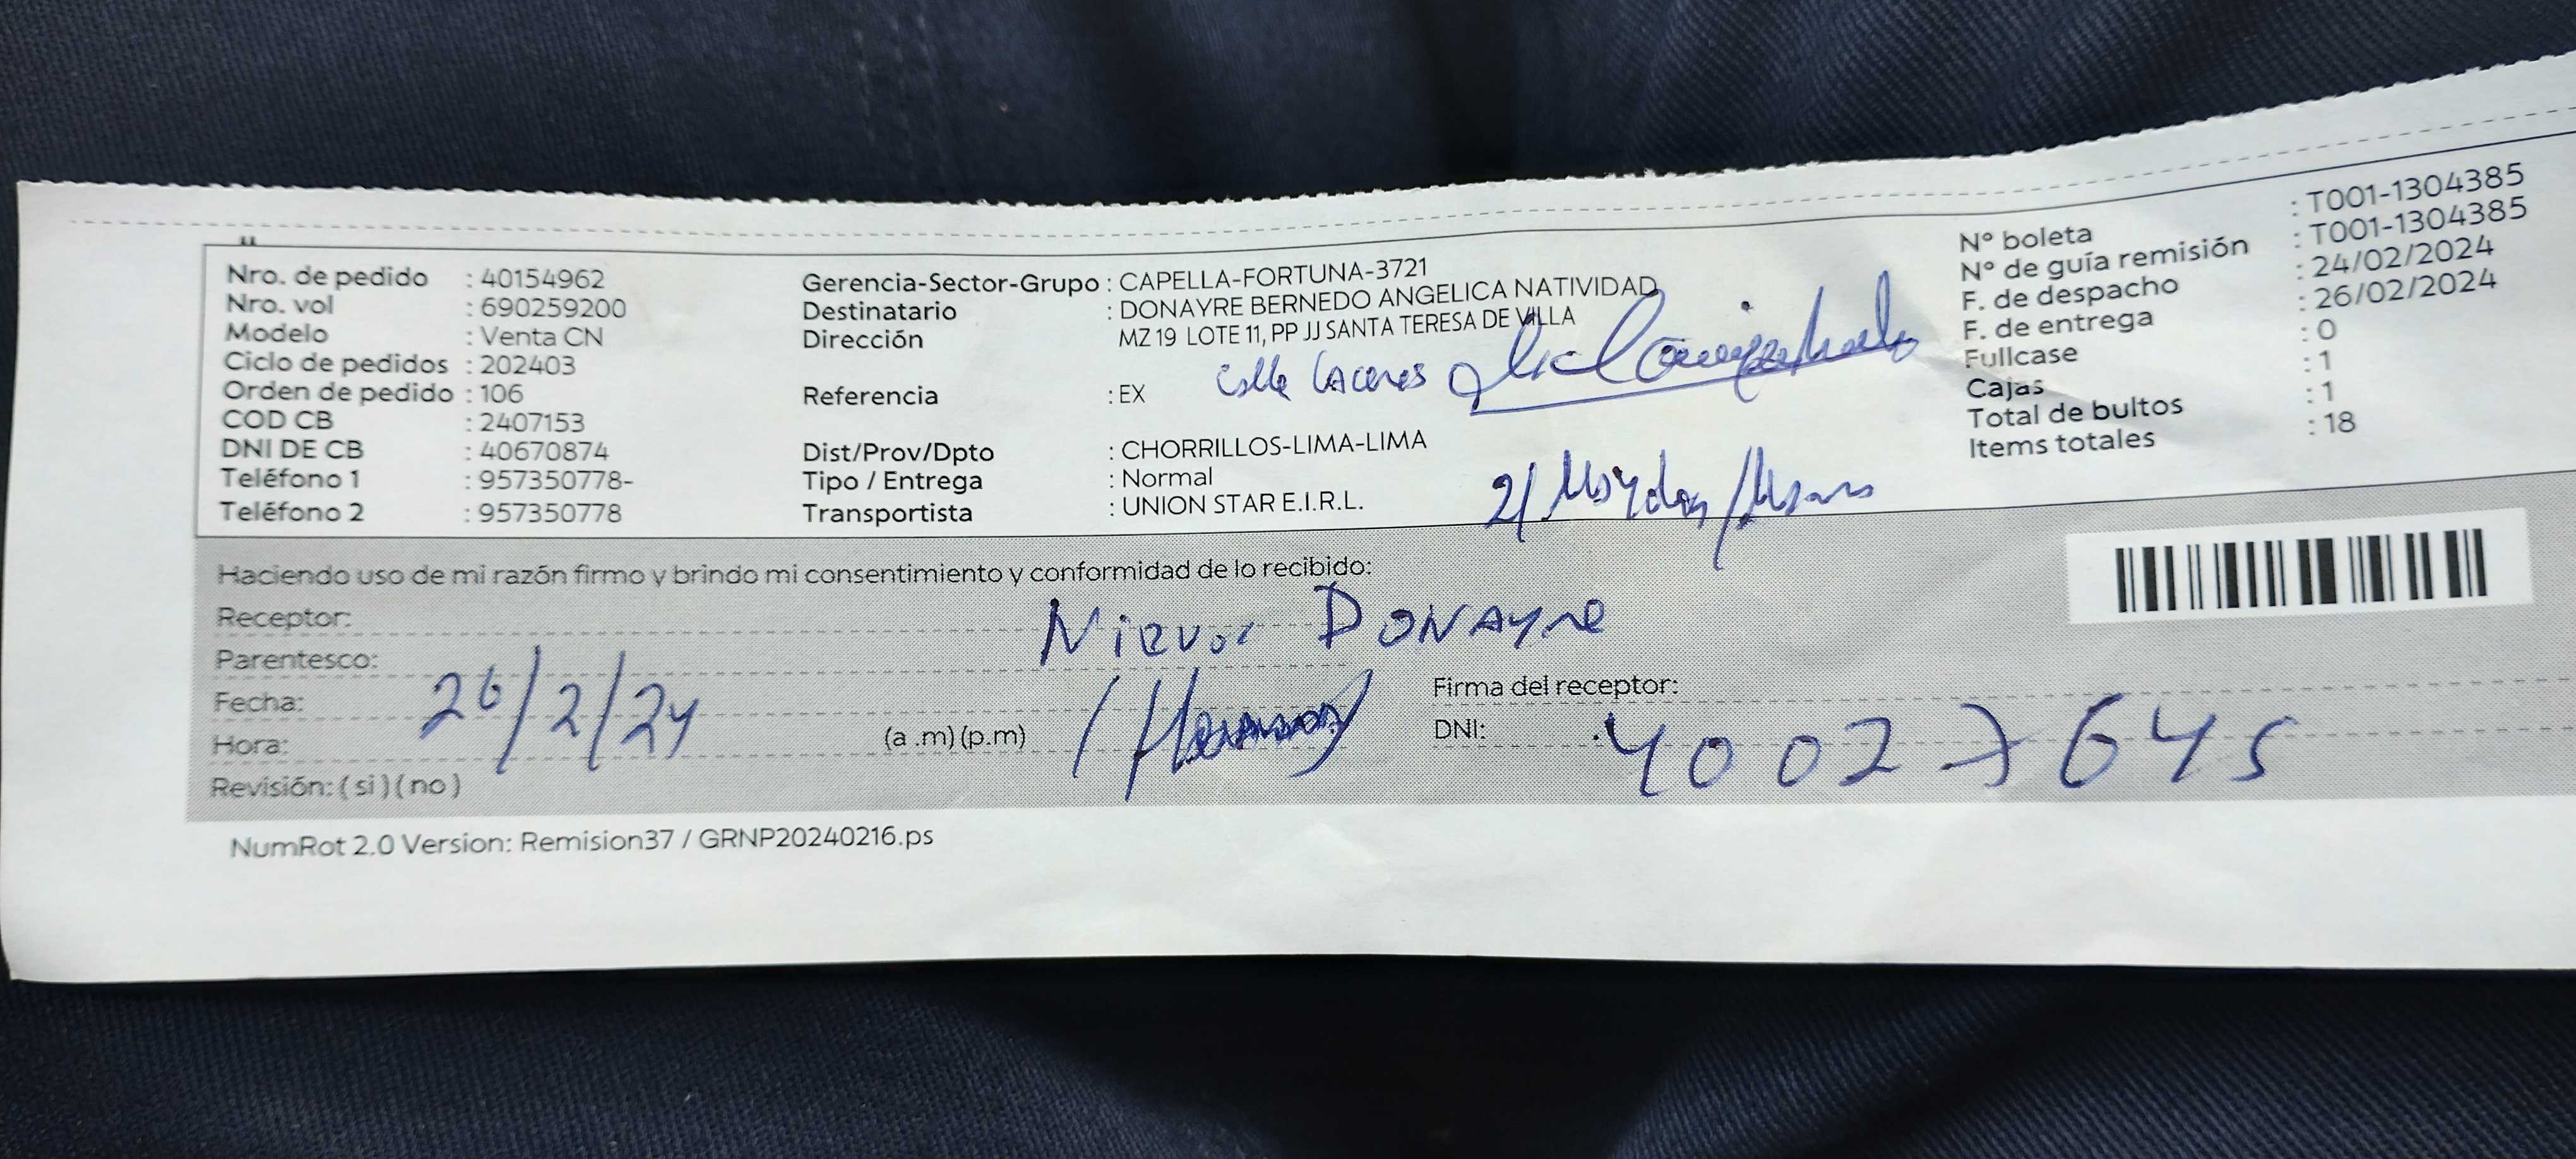 Nro. de pedido : 40154962
Nro. vol : 690259200
Modelo : Venta CN
Ciclo de pedidos : 202403
Orden de pedido : 106
COD CB : 2407153
DNI DE CB : 40670874
Teléfono 1 : 957350778-
Teléfono 2 : 957350778
Gerencia-Sector-Grupo : CAPELLA-FORTUNA-3721
Destinatario : DONAYRE BERNEDO ANGELICA NATIVIDAD
Dirección MZ 19 LOTE 11, PP JJ SANTA TERESA DE VILLA
Calle Caceres
Referencia : EX
Dist/Prov/Dpto : CHORRILLOS-LIMA-LIMA
Tipo / Entrega : Normal
Transportista : UNION STAR E.I.R.L.
N° boleta : T001-1304385
N° de guía remisión : T001-1304385
F. de despacho : 24/02/2024
F. de entrega : 26/02/2024
Fullcase : 0
Cajas : 1
Total de bultos : 1
Items totales : 18
Haciendo uso de mi razón firmo y brindo mi consentimiento y conformidad de lo recibido:
Receptor: DONAYRE
Parentesco:
Fecha: 26/2/24
Hora: (a .m) (p.m)
Revisión: ( si ) ( no )
Firma del receptor:
DNI: 40027645
NumRot 2.0 Version: Remision37 / GRNP20240216.ps